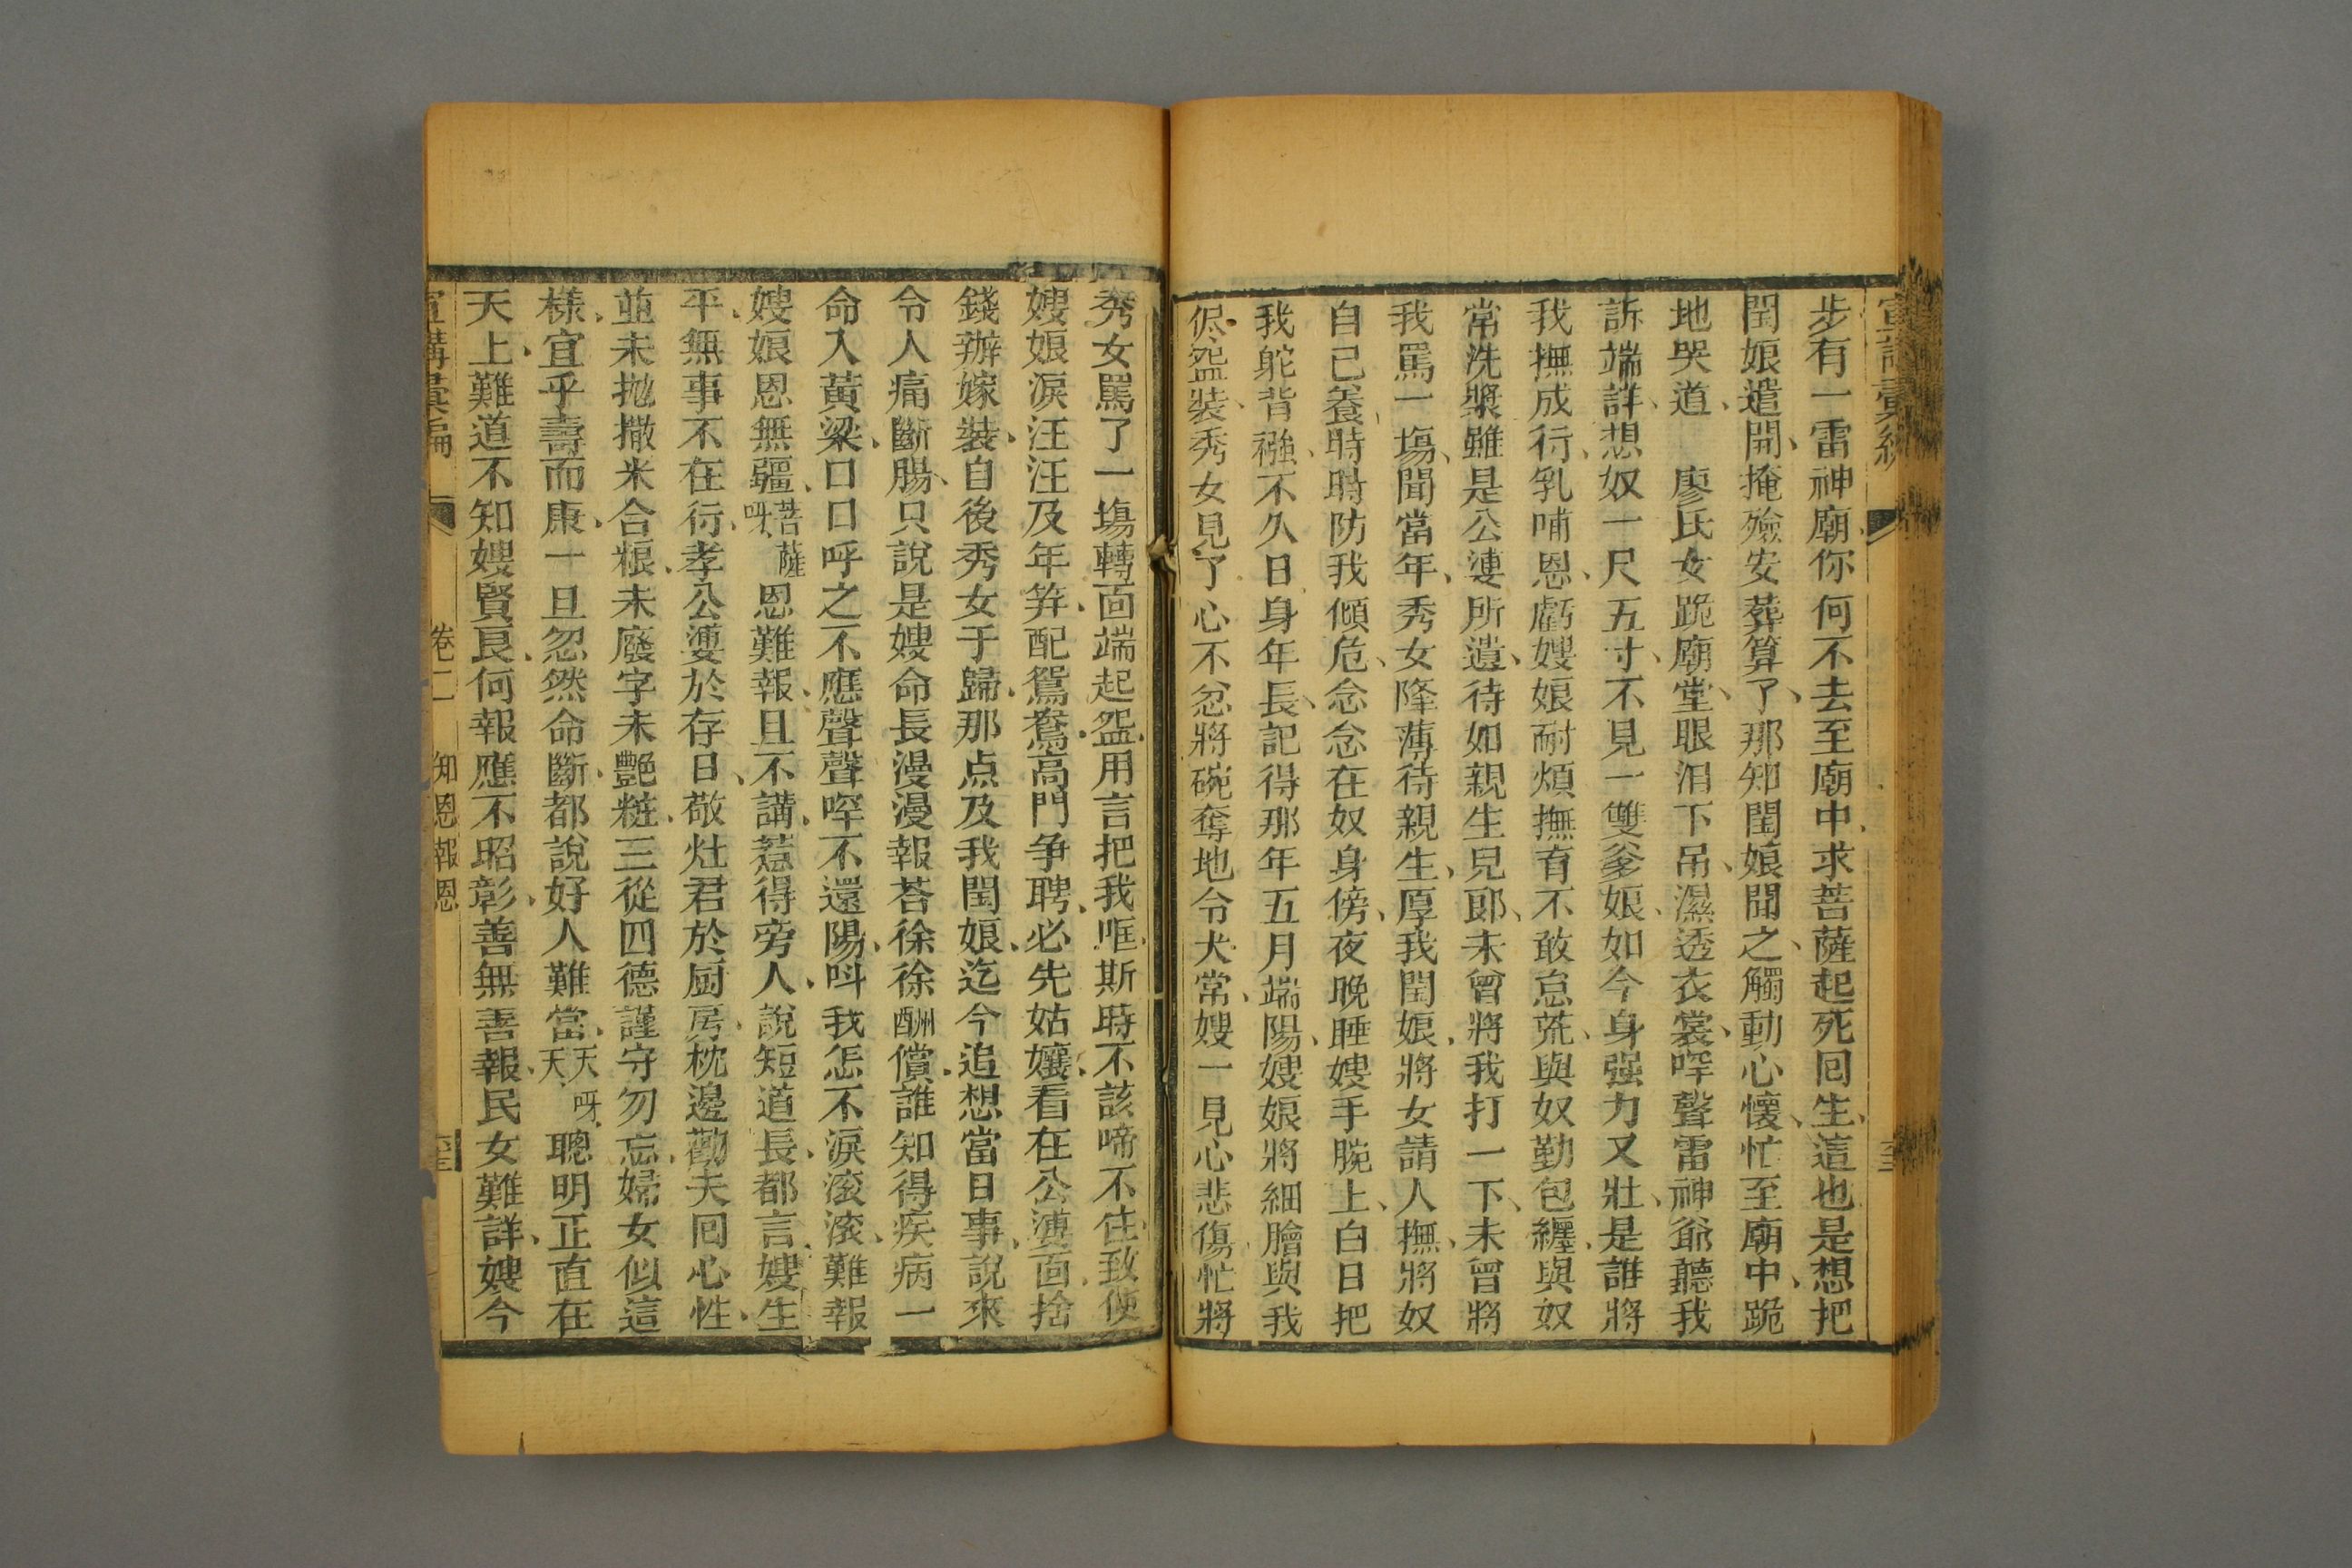 宣講彙編
步有一雷神廟你何不去至廟中求菩薩起死回生這也是想把
閏娘遣開掩殮安葬算了那知閏娘聞之觸動心懷忙至廟中跪
地哭道 廖氏女跪廟堂眼泪下吊濕透衣裳哞聲雷神爺聽我
訴端詳想奴一尺五寸不見一雙爹娘如今身强力又壯是誰將
我撫成行乳哺恩虧嫂娘耐煩撫育不敢怠荒與奴勤包纏與奴
常洗漿雖是公婆所遺待如親生兒郎未曾將我打一下未曾將
我罵一塲聞當年秀女降薄待親生厚我閏娘將女請人撫將奴
自己養時時防我傾危念念在奴身傍夜晚睡嫂手腕上白日把
我駝背襁不久日身年長記得那年五月端陽嫂娘將細膾與我
㑳盌裝秀女見了心不忿將碗奪地令犬常嫂一見心悲傷忙將
秀女罵了一塲轉面端起盌用言把我哐斯時不該啼不住致使
嫂娘淚汪汪及年笄配鴛鴦高門争聘必先姑孃看在公婆面捨
錢辦嫁裝自後秀女于歸那点及我閏娘迄今追想當日事說來
令人痛斷腸只說是嫂命長漫漫報荅徐徐酬償誰知得疾病一
命入黃粱口口呼之不應聲聲哞不還陽呌我怎不淚滚滚難報
嫂娘恩無疆菩薩呀恩難報且不講惹得旁人說短道長都言嫂生
平無事不在行孝公婆於存日敬灶君於厨房枕邊勸夫回心性
並未抛撒米合粮未廢字未艷粧三從四德謹守勿忘婦女似這
樣宜乎壽而康一旦忽然命斷都說好人難當天天呀聰明正直在
天上難道不知嫂賢良何報應不昭彰善無善報民女難詳嫂今
宣講彙編 卷二 知恩報恩